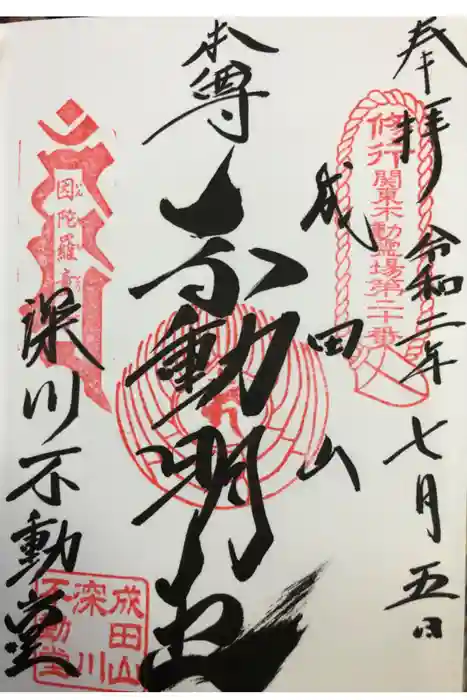 奉拝
令和二年七月五日
修行
関東不動霊場第二十番
成田山
本尊
不動明王
因陀羅
深川不動堂
成田山
深川
不動堂